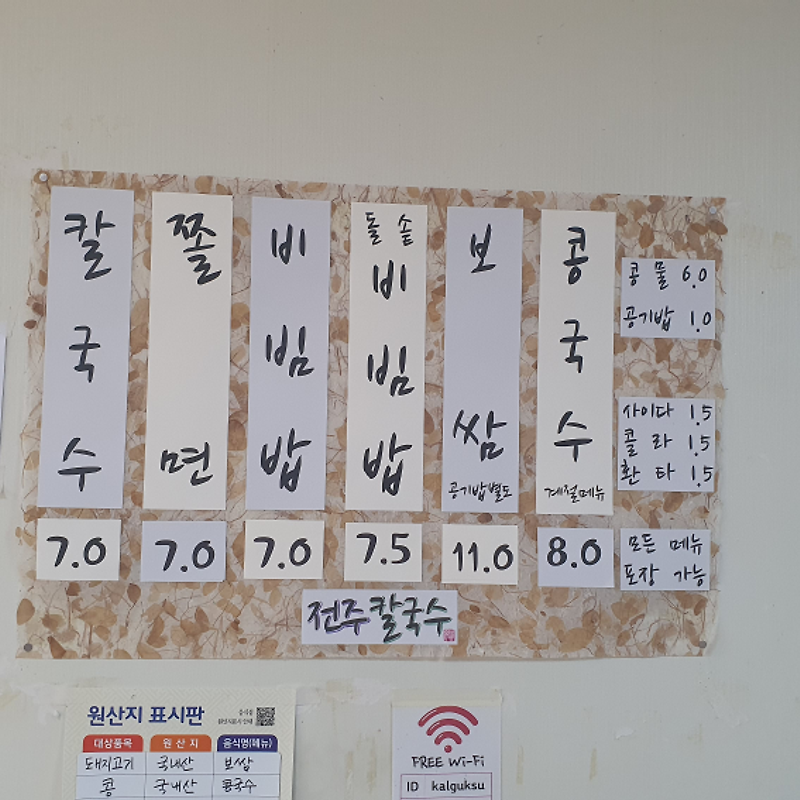 칼국수
7.0
쫄면
7.0
비빔밥
7.0
돌솥
비빔밥
7.5
보쌈
공기밥별도
11.0
콩국수
계절메뉴
8.0
콩물 6.0
공기밥 1.0
사이다 1.5
콜라 1.5
환타 1.5
모든 메뉴
포장 가능
전주칼국수
원산지 표시판
대상품목 원산지 음식명(메뉴)
돼지고기 국내산 보쌈
콩 국내산 콩국수
FREE Wi-Fi
ID kalguksu